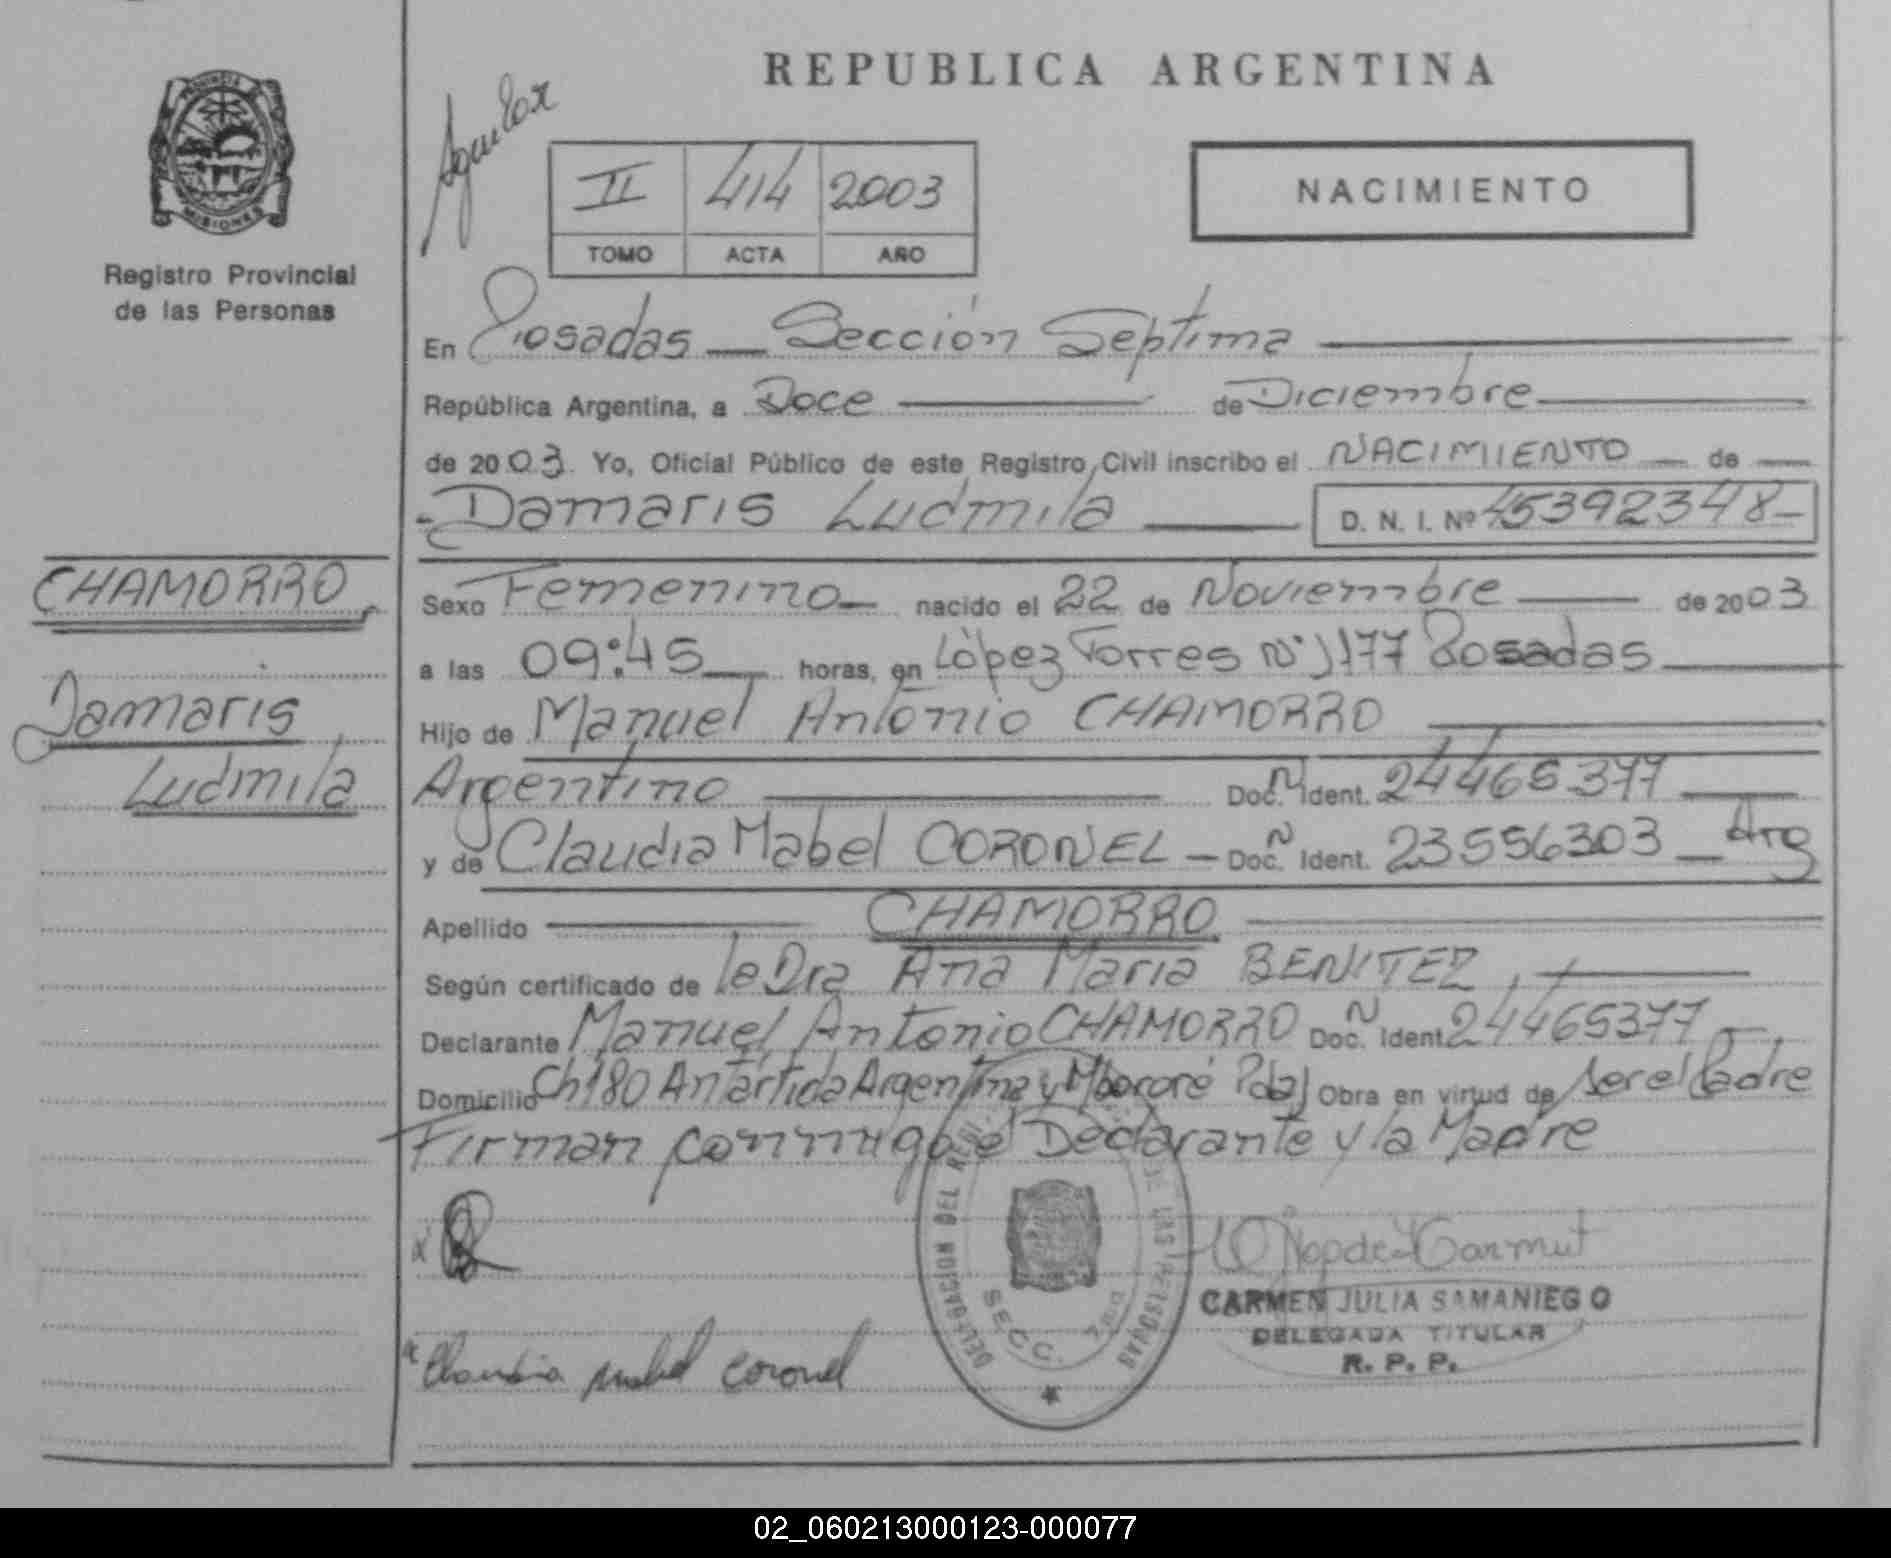 PROVINCIA DE
MISIONES
Registro Provincial
de las Personas
CHAMORRO
Damaris
Ludmila
REPUBLICA ARGENTINA
Aguilar
II 414 2003
TOMO ACTA AÑO
NACIMIENTO
En Posadas — Sección Septima
República Argentina, a Doce de Diciembre
de 2003. Yo, Oficial Público de este Registro Civil inscribo el NACIMIENTO — de —
Damaris Ludmila — D. N. I. Nº 45392348-
Sexo Femenino — nacido el 22 de Noviembre — de 2003
a las 09:45 horas, en López Torres Nº 1177 Posadas
Hijo de Manuel Antonio CHAMORRO
Argentino — Doc. Ñ Ident. 24465377
y de Claudia Mabel CORONEL — Doc. Ñ Ident. 23556303 — Arg
Apellido CHAMORRO
Según certificado de la Dra Ana Maria BENITEZ
Declarante Manuel Antonio CHAMORRO Doc. Ñ Ident. 24465377
Domicilio Ch 180 Antártida Argentina y Mbororé Pdas Obra en virtud de ser el Padre
Firman conmigo el Declarante y la Madre
DELEGACION DEL REGI DE LAS PERSONAS
SECC. 7ma
CARMEN JULIA SAMANIEGO
DELEGADA TITULAR
R. P. P.
Claudia Mabel Coronel
02_060213000123-000077